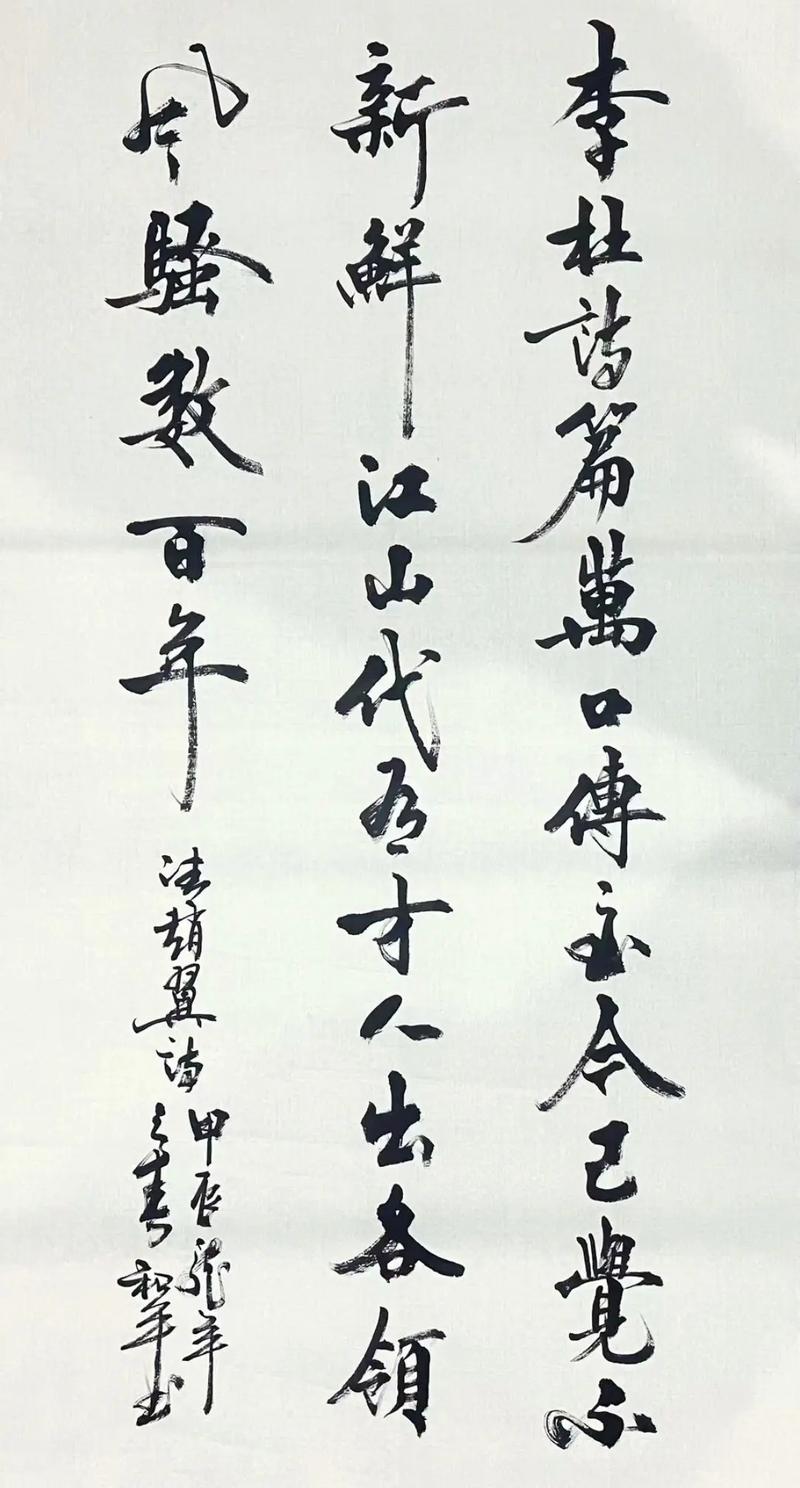 李杜詩篇萬口傳至今已覺不
新鮮江山代有才人出各領
風騷数百年
清趙翼詩
甲辰龍年
之春